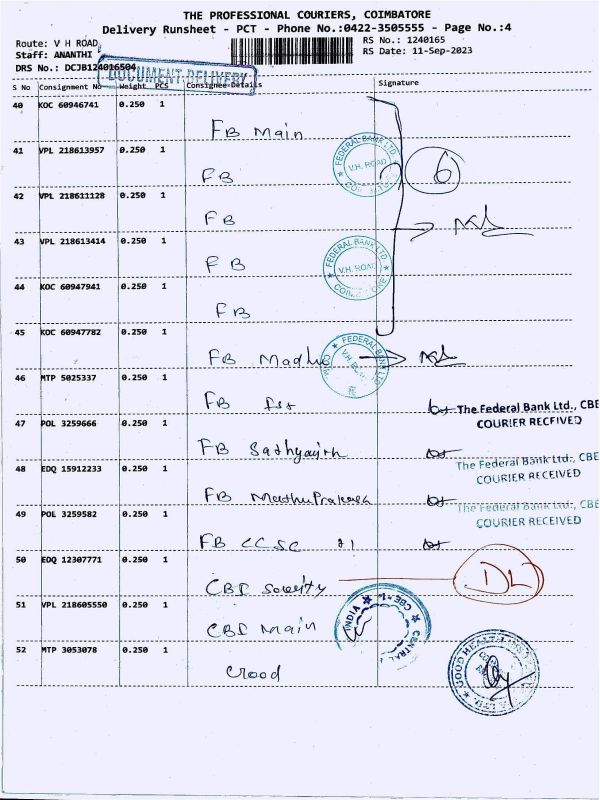 THE PROFESSIONAL COURIERS, COIMBATORE
Delivery Runsheet - PCT - Phone No.:0422-3505555 - Page No.:4
Route: V H ROAD
RS No.: 1240165
Staff: ANANTHI
RS Date: 11-Sep-2023
DRS No.: DCJB124016504
DOCUMENT DELIVERY
S No Consignment No Weight PCS Consignee Details Signature
40 KOC 60946741 0.250 1
FB Main
41 VPL 218613957 0.250 1
FB
FEDERAL BANK LTD
V.H. ROAD
6
42 VPL 218611128 0.250 1
FB
43 VPL 218613414 0.250 1
FB
FEDERAL BANK LTD
V.H. ROAD
44 KOC 60947941 0.250 1
FB
45 KOC 60947782 0.250 1
FB Madhu
FEDERAL BANK LTD
46 MTP 5025337 0.250 1
FB
The Federal Bank Ltd., CBE
COURIER RECEIVED
47 POL 3259666 0.250 1
FB
The Federal Bank Ltd., CBE
COURIER RECEIVED
48 EDQ 15912233 0.250 1
FB MadhuPrakash
The Federal Bank Ltd., CBE
COURIER RECEIVED
49 POL 3259582 0.250 1
FB CCSC
50 EDQ 12307771 0.250 1
CBI
DL
51 VPL 218605550 0.250 1
CBI Main
CENTRAL
INDIA
CBE-1
52 MTP 3053078 0.250 1
GOOD HEALTH